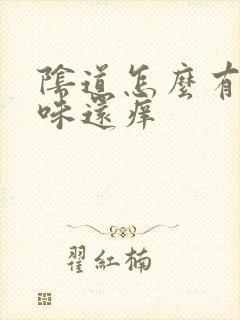 陰道怎麼有
味還痒
翟紅楠